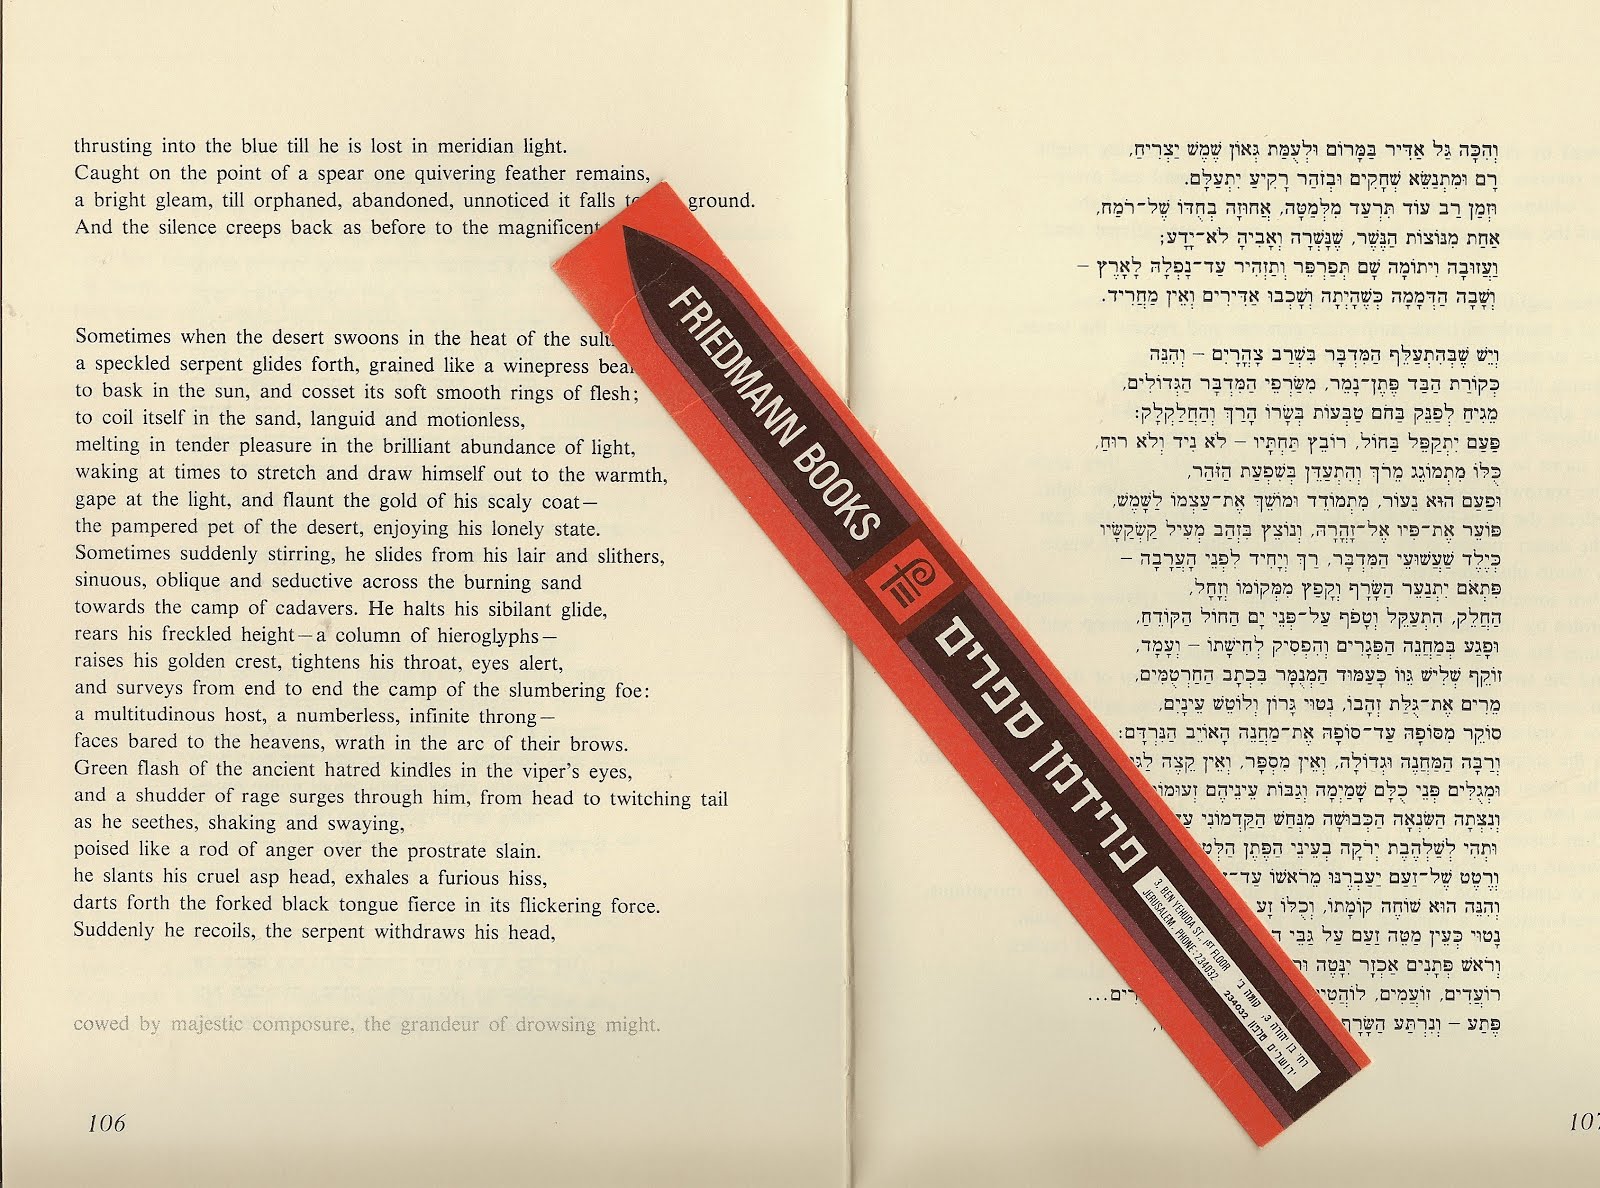 thrusting into the blue till he is lost in meridian light.
Caught on the point of a spear one quivering feather remains,
a bright gleam, till orphaned, abandoned, unnoticed it falls ground.
And the silence creeps back as before to the magnificent
Sometimes when the desert swoons in the heat of the
a speckled serpent glides forth, grained like a winepress
to bask in the sun, and cosset its soft smooth rings of flesh;
to coil itself in the sand, languid and motionless,
melting in tender pleasure in the brilliant abundance of light,
waking at times to stretch and draw himself out to the warmth,
gape at the light, and flaunt the gold of his scaly coat—
the pampered pet of the desert, enjoying his lonely state.
Sometimes suddenly stirring, he slides from his lair and slithers,
sinuous, oblique and seductive across the burning sand
towards the camp of cadavers. He halts his sibilant glide,
rears his freckled height—a column of hieroglyphs—
raises his golden crest, tightens his throat, eyes alert,
and surveys from end to end the camp of the slumbering foe:
a multitudinous host, a numberless, infinite throng—
faces bared to the heavens, wrath in the arc of their brows.
Green flash of the ancient hatred kindles in the viper's eyes,
and a shudder of rage surges through him, from head to twitching tail
as he seethes, shaking and swaying,
poised like a rod of anger over the prostrate slain.
he slants his cruel asp head, exhales a furious hiss,
darts forth the forked black tongue fierce in its flickering force.
Suddenly he recoils, the serpent withdraws his head,
cowed by majestic composure, the grandeur of drowsing might.
106
FRIEDMANN BOOKS
פרידמן ספרים
3, BEN YEHUDA ST., 1ST FLOOR
JERUSALEM, PHONE: 234032
רח' בן יהודה 3, קומה ב'
ירושלים טלפון 234032
וְהִכָּה גַל אַדִּיר בַּמָּרוֹם וּלְעֻמַּת גְּאוֹן שֶׁמֶשׁ יַצְרִיחַ,
רָם וּמִתְנַשֵּׂא שְׁחָקִים וּבְזֹהַר רָקִיעַ יִתְעַלָּם.
וּזְמַן רַב עוֹד תִּרְעַד מִלְּמַטָּה, אֲחוּזָה בְחֻדּוֹ שֶׁל־רֹמַח,
אַחַת מִנּוֹצוֹת הַנֶּשֶׁר, שֶׁנָּשְׁרָה וְאָבִיהָ לֹא־יָדָע;
וַעֲזוּבָה וִיתוֹמָה שָׁם תְּפַרְפֵּר וְתַזְהִיר עַד־נָפְלָהּ לָאָרֶץ –
וְשָׁבָה הַדְּמָמָה כְּשֶׁהָיְתָה וְשָׁכְבוּ אַדִּירִים וְאֵין מַחֲרִיד.
וְיֵשׁ שֶׁבְּהִתְעַלֵּף הַמִּדְבָּר בְּשָׁרָב צָהֳרַיִם – וְהִנֵּה
כְּקוֹרַת הַבַּד פֶּתֶן־נָמֵר, מִשַּׂרְפֵי הַמִּדְבָּר הַגְּדוֹלִים,
מֵגִיחַ לְפַנֵּק בַּחֹם טַבְּעוֹת בְּשָׂרוֹ הָרַךְ וְהַחֲלַקְלָק:
פַּעַם יִתְקַפֵּל בַּחוֹל, רוֹבֵץ תַּחְתָּיו – לֹא נִיד וְלֹא רוּחַ,
כֻּלּוֹ מִתְמוֹגֵג מֵרֹךְ וְהִתְעַדֵּן בְּשִׁפְעַת הַזֹּהַר,
וּפַעַם הוּא נֵעוֹר, מִתְמוֹדֵד וּמוֹשֵׁךְ אֶת־עַצְמוֹ לַשֶּׁמֶשׁ,
פּוֹעֵר אֶת־פִּיו אֶל־זָהֳרָהּ, וְנוֹצֵץ בִּזְהַב מְעִיל קַשְׂקַשָּׂיו
כְּיֶלֶד שַׁעֲשׁוּעֵי הַמִּדְבָּר, רַךְ וְיָחִיד לִפְנֵי הָעֲרָבָה –
פִּתְאֹם יִתְנַעֵר הַשָּׂרָף וְקָפַץ מִמְּקוֹמוֹ וְזָחָל,
הַחֲלֵק, הִתְעַקֵּל וְטָפֹף עַל־פְּנֵי יָם הַחוֹל הַקּוֹדֵחַ,
וּפָגַע בְּמַחֲנֵה הַפְּגָרִים וְהִפְסִיק לְחִישָׁתוֹ – וְעָמָד,
זוֹקֵף שְׁלִישׁ גֵּווֹ כְּעַמּוּד הַמְנֻמָּר בִּכְתָב הַחַרְטֻמִּים,
מֵרִים אֶת־גֻּלַּת זְהָבוֹ, נְטוּי גָּרוֹן וְלוֹטֵשׁ עֵינָיִם,
סוֹקֵר מִסּוֹפָהּ עַד־סוֹפָהּ אֶת־מַחֲנֵה הָאוֹיֵב הַנִּרְדָּם:
וְרַבָּה הַמַּחֲנֶה וּגְדוֹלָה, וְאֵין מִסְפָּר, וְאֵין קֵצֶה
וּמְגֻלִּים פְּנֵי כֻלָּם שָׁמַיְמָה וְגַבּוֹת עֵינֵיהֶם
וְנִצְּתָה הַשִּׂנְאָה הַכְּבוּשָׁה מִנְּחַשׁ הַקַּדְמוֹנִי
וּתְהִי לְשַׁלְהֶבֶת יְרֹקָה בְּעֵינֵי הַפֶּתֶן
וְרֶטֶט שֶׁל־זַעַם יַעַבְרֶנּוּ מֵרֹאשׁוֹ
וְהִנֵּה הוּא שׁוֹחֶה קוֹמָתוֹ, וְכֻלּוֹ
נָטוּי כְּעֵין מַטֵּה זַעַם עַל גַּבֵּי
וְרֹאשׁ פְּתָנִים אַכְזָר יַנְטֶּה
רוֹעֲדִים, זוֹעֲמִים,
פֶּתַע – וְנִרְתַּע הַשָּׂרָף